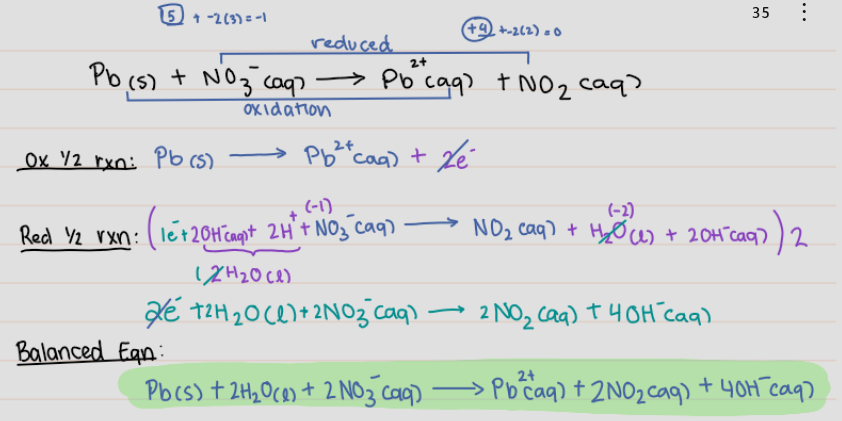 35
5 + -2(3) = -1
+4 + -2(2) = 0
reduced
Pb(s) + NO₃⁻(aq) → Pb²⁺(aq) + NO₂(aq)
oxidation
Ox ½ rxn: Pb(s) → Pb²⁺(aq) + 2e⁻
(-1) (-2)
Red ½ rxn: (1e⁻ + 2OH⁻(aq) + 2H⁺ + NO₃⁻(aq) → NO₂(aq) + H₂O(l) + 2OH⁻(aq)) 2
1 2H₂O(l)
2e⁻ + 2H₂O(l) + 2NO₃⁻(aq) → 2NO₂(aq) + 4OH⁻(aq)
Balanced Eqn:
Pb(s) + 2H₂O(l) + 2NO₃⁻(aq) → Pb²⁺(aq) + 2NO₂(aq) + 4OH⁻(aq)